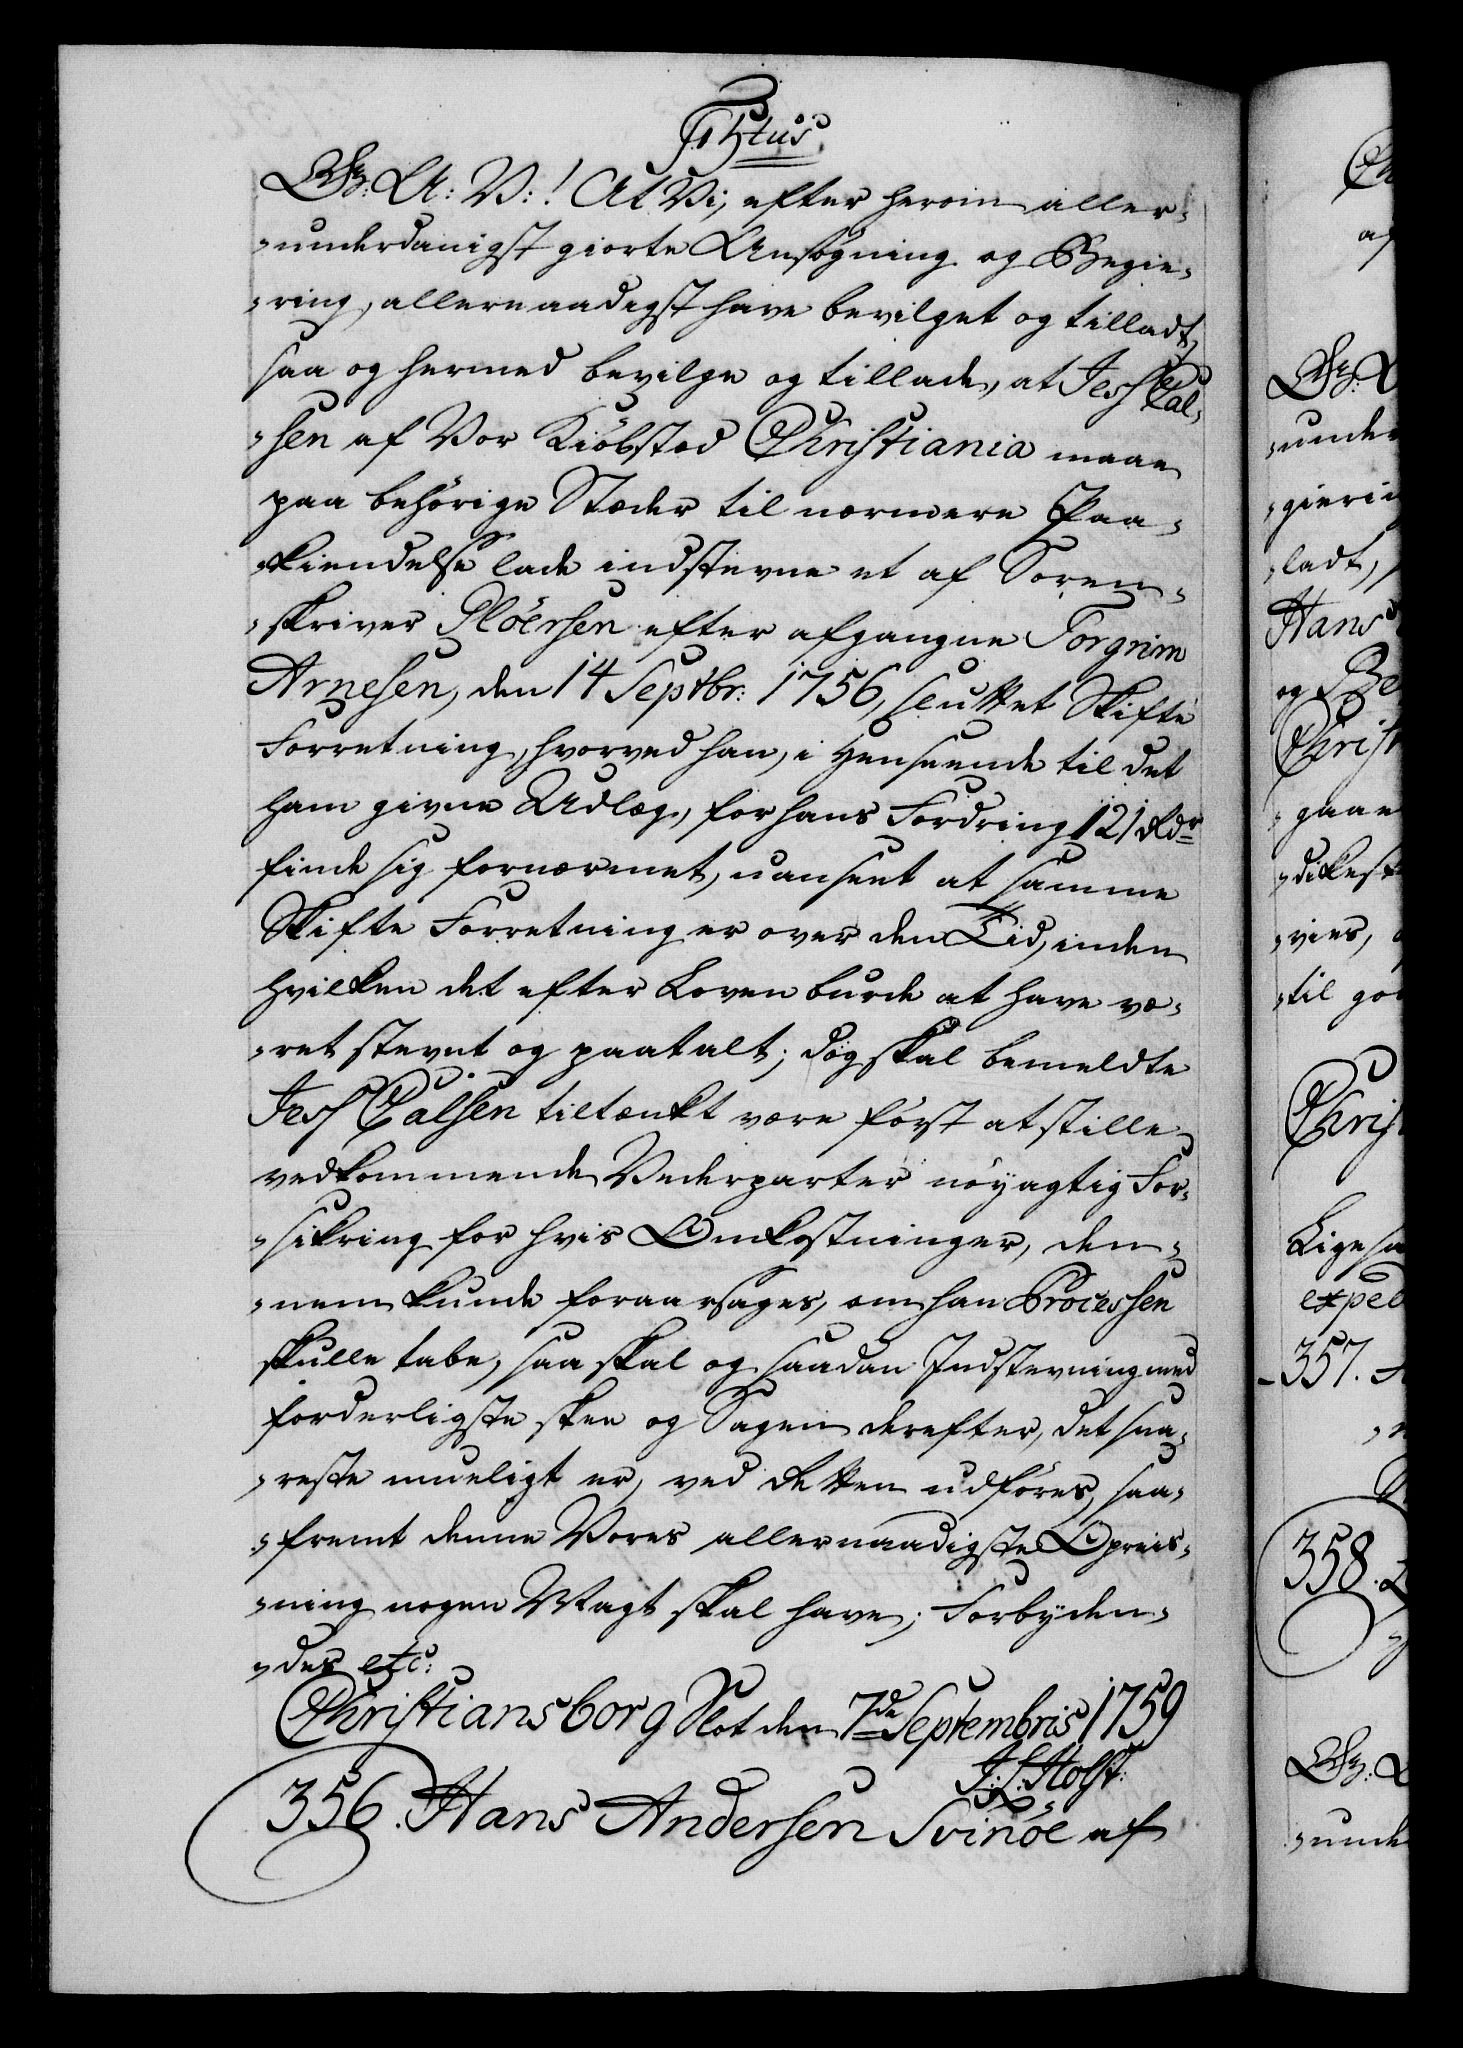 G: A: V:! At Vi, efter herom aller-
-underdanigst giorte Ansøgning og Begie-
-ring, allernaadigst have bevilget og tilladt,
saa og hermed bevilge og tillade, at Jess Pal-
-sen af Vor Kiöbsted Christiania maae
paa behörige Stæder til nærmere Paa-
-kiendelse lade indstevne et af Soren-
-skriver Plöersen efter afgangne Torgrim
Arnesen, den 14 Septbr: 1756, sluttet Skifte
Forretning, hvorved han, i Henseende til det
ham givne Udlæg, for hans Fordring 121 Rdr
finde sig fornærmet, uanseet at samme
Skifte Forretning er over den Tid, inden
hvilken det efter Loven burde at have væ-
-ret stevnt og paatalt; dog skal bemeldte
Jess Palsen tiltænkt være först at stille
vedkommende Vederparter nöyagtig For-
-sikring for hvis Omkostninger, den-
-nem kunde foraarsages, om han Processen
skulle tabe, saa skal og saadan Indstevning med
forderligste skee og Sagen derefter, det sna-
-reste mueligt er, ved Retten udföres, saa-
-fremt denne Vores allernaadigste Opreis-
-ning nogen Magt skal have; Forbyden-
-des etc:
Christiansborg Slot den 7de Septembris 1759
J: L: Holst:
356. Hans Andersen Svinöe af
Ch
af
under
gierin
-ladt,
Hans
og Be
Christ
-gaae
-dikest
-vies,
-til go
Christ
Ligesa
exped
357.
358.
-unde